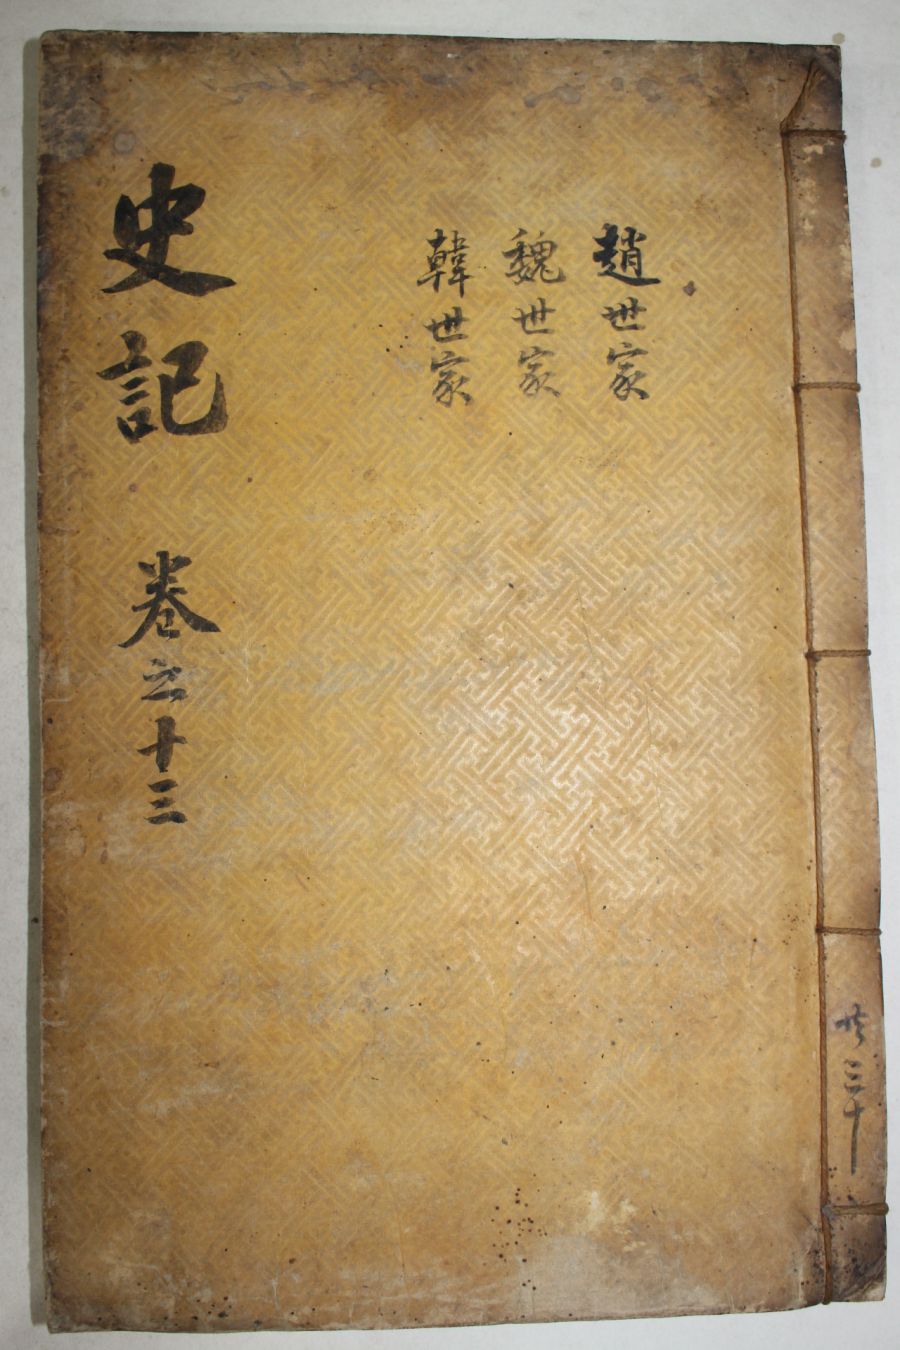 趙世家
魏世家
韓世家
史記 卷之十三
共三十